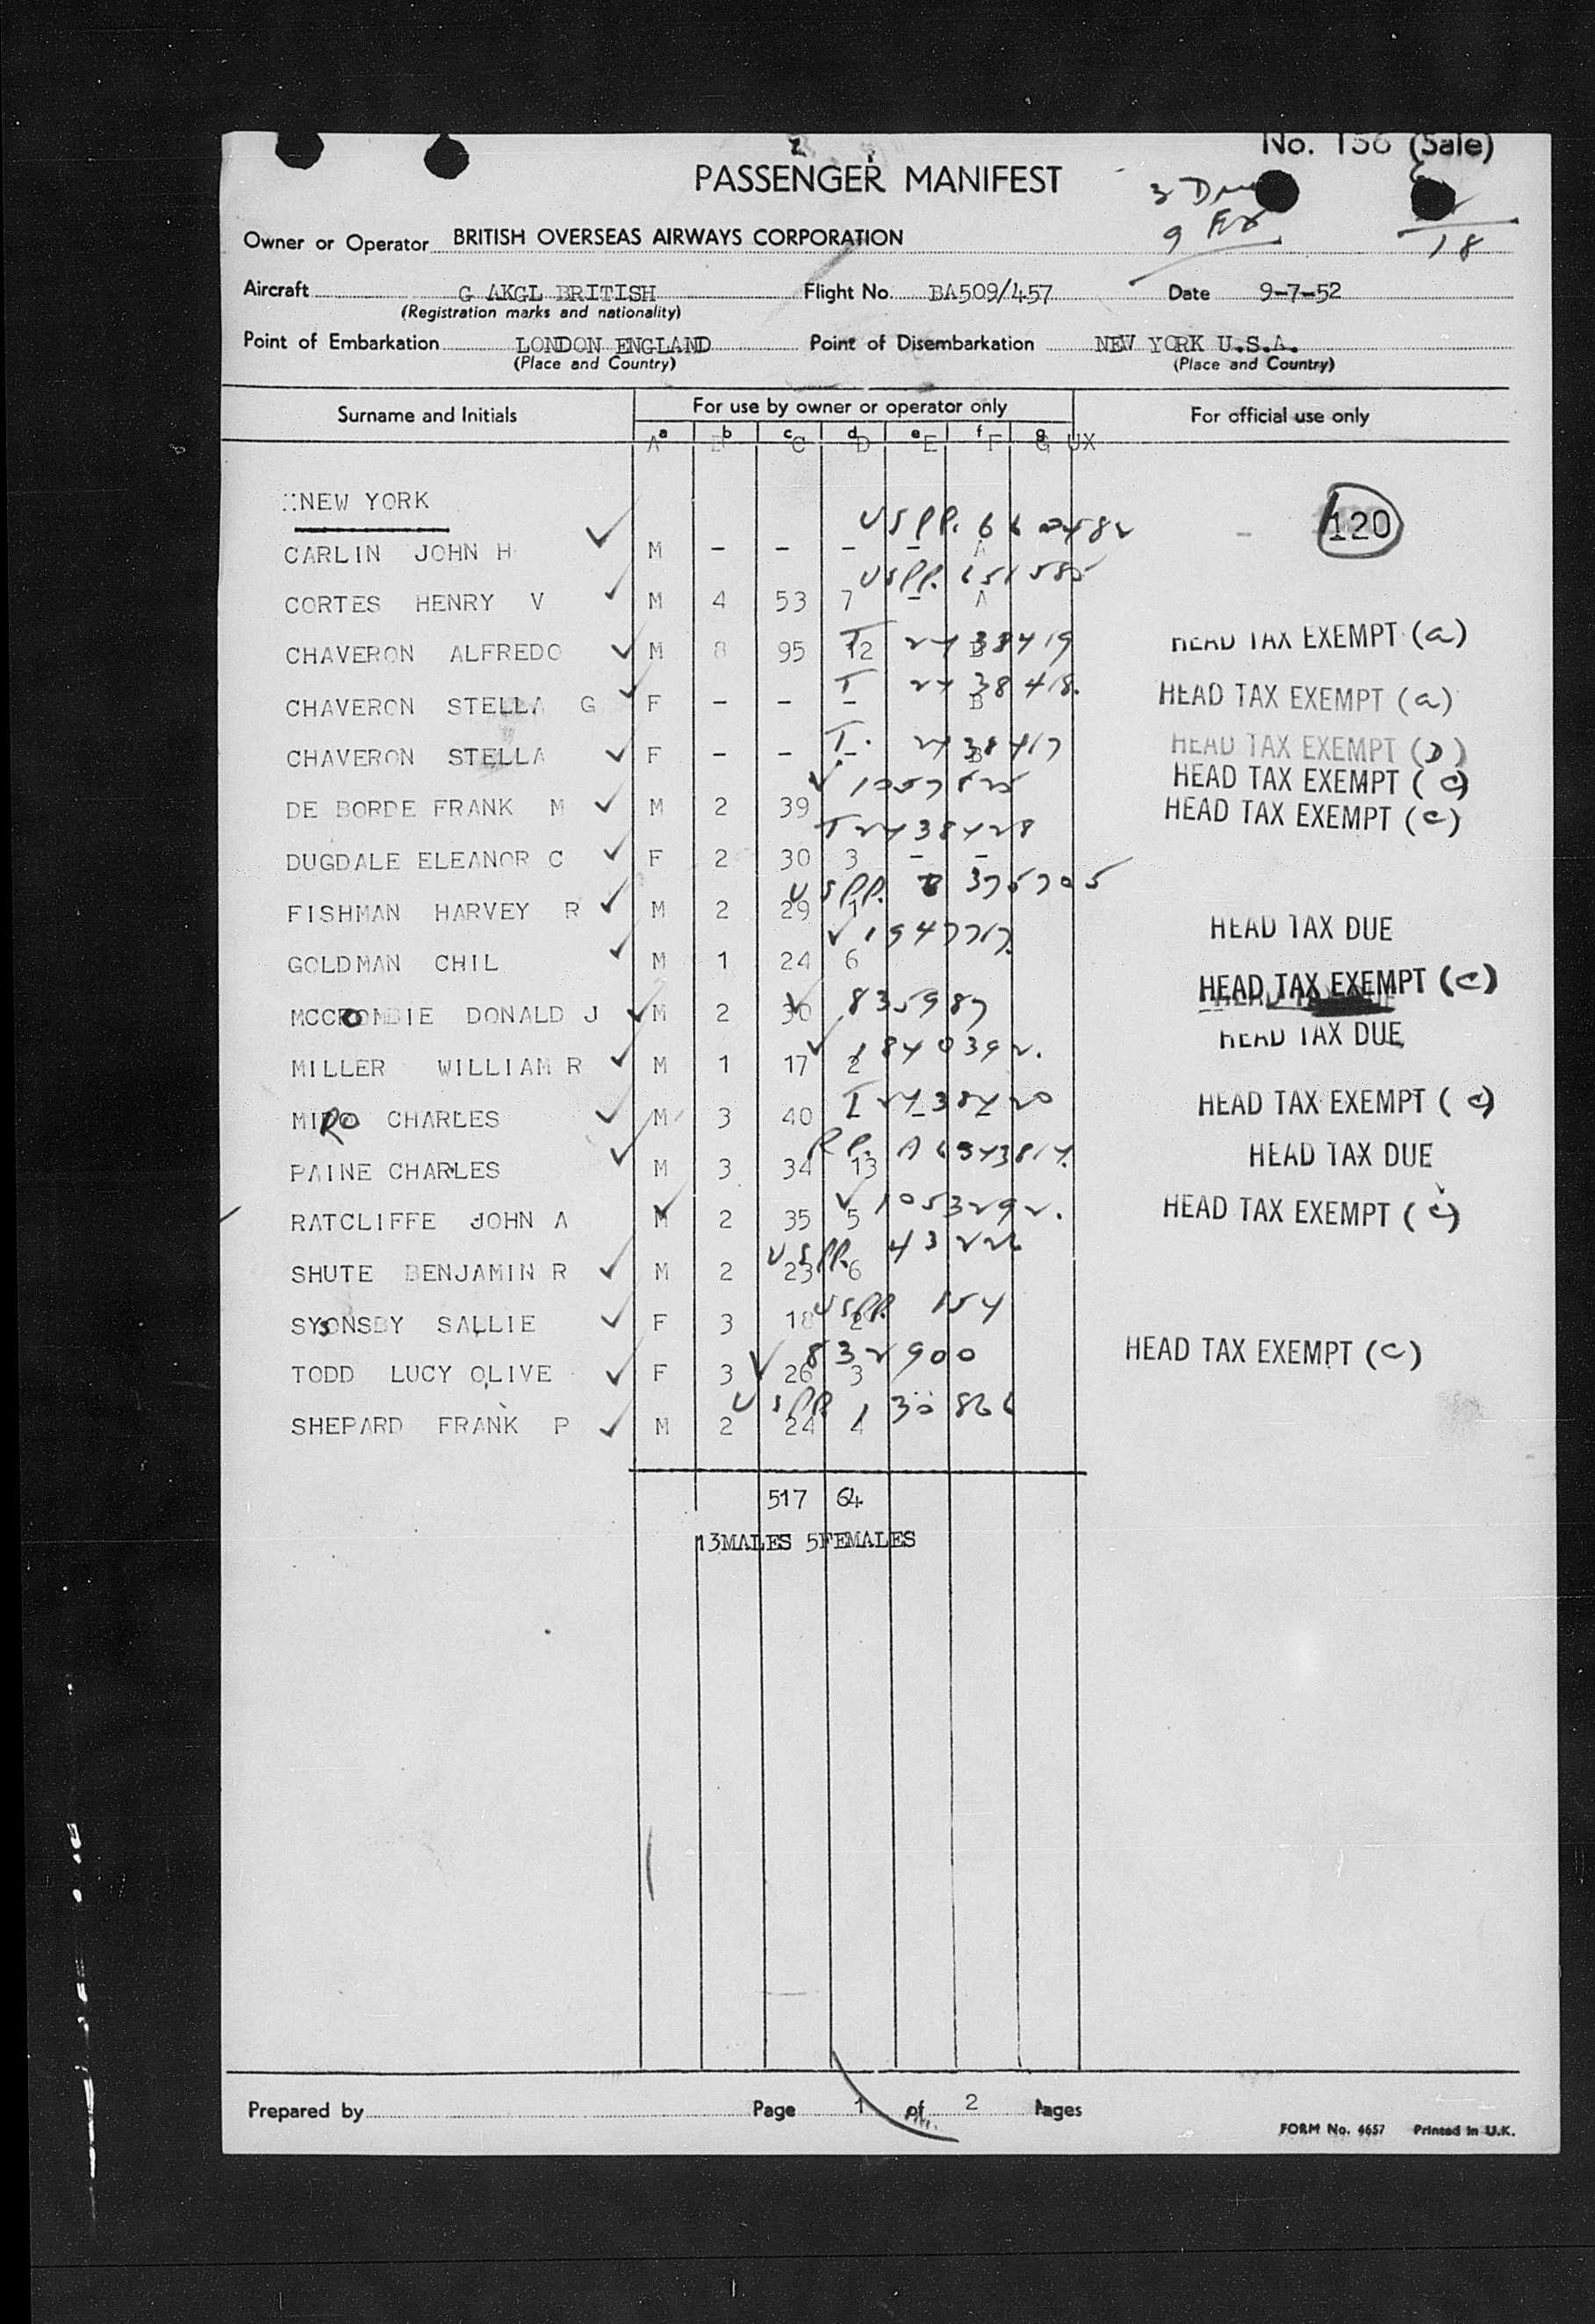 No. 156 (Sale)
PASSENGER MANIFEST
3 Due
9 Ex
18
Owner or Operator BRITISH OVERSEAS AIRWAYS CORPORATION
Aircraft G AKGL BRITISH Flight No. BA509/457 Date 9-7-52
(Registration marks and nationality)
Point of Embarkation LONDON ENGLAND Point of Disembarkation NEW YORK U.S.A.
(Place and Country) (Place and Country)
Surname and Initials For use by owner or operator only For official use only
a b c d e f g
A B C D E F G UX
::NEW YORK
120
USPP.
CARLIN JOHN H M - - - - A
USPP. 151585
CORTES HENRY V M 4 53 7 - A
CHAVERON ALFREDO M 8 95 12 T 2438419 HEAD TAX EXEMPT (a)
T 2438418.
CHAVERON STELLA G F - - - B HEAD TAX EXEMPT (a)
CHAVERON STELLA F - - - B T. 2438417 HEAD TAX EXEMPT (D)
✓ 1057825 HEAD TAX EXEMPT (c)
DE BORDE FRANK M M 2 39 HEAD TAX EXEMPT (c)
T2438428
DUGDALE ELEANOR C F 2 30 3 - -
USPP. 375705
FISHMAN HARVEY R M 2 29 1
✓ 1947717. HEAD TAX DUE
GOLDMAN CHIL M 1 24 6
HEAD TAX EXEMPT (c)
MCCROMBIE DONALD J M 2 30 ✓ 835987
HEAD TAX DUE
✓ 1840392.
MILLER WILLIAM R M 1 17 2
T2438420 HEAD TAX EXEMPT (c)
MIRO CHARLES M 3 40 - - -
RP. A6343814. HEAD TAX DUE
PAINE CHARLES M 3 34 13
✓ 1053292. HEAD TAX EXEMPT (c)
RATCLIFFE JOHN A M 2 35 5
USPP. 43226
SHUTE BENJAMIN R M 2 23 6
USPP. 154
SYSONSBY SALLIE F 3 18 2
✓ 832900 HEAD TAX EXEMPT (c)
TODD LUCY OLIVE F 3 26 3
USPP 130866
SHEPARD FRANK P M 2 24 4
517 64
13MALES 5FEMALES
Prepared by Page 1 of 2 Pages
FORM No. 4657 Printed in U.K.